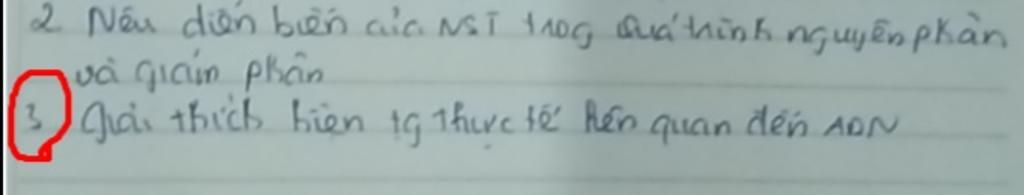 2. Nêu diễn biến của NST trog quá trình nguyên phân
và giảm phân
3 Giải thích hiện tg thực tế liên quan đến ADN